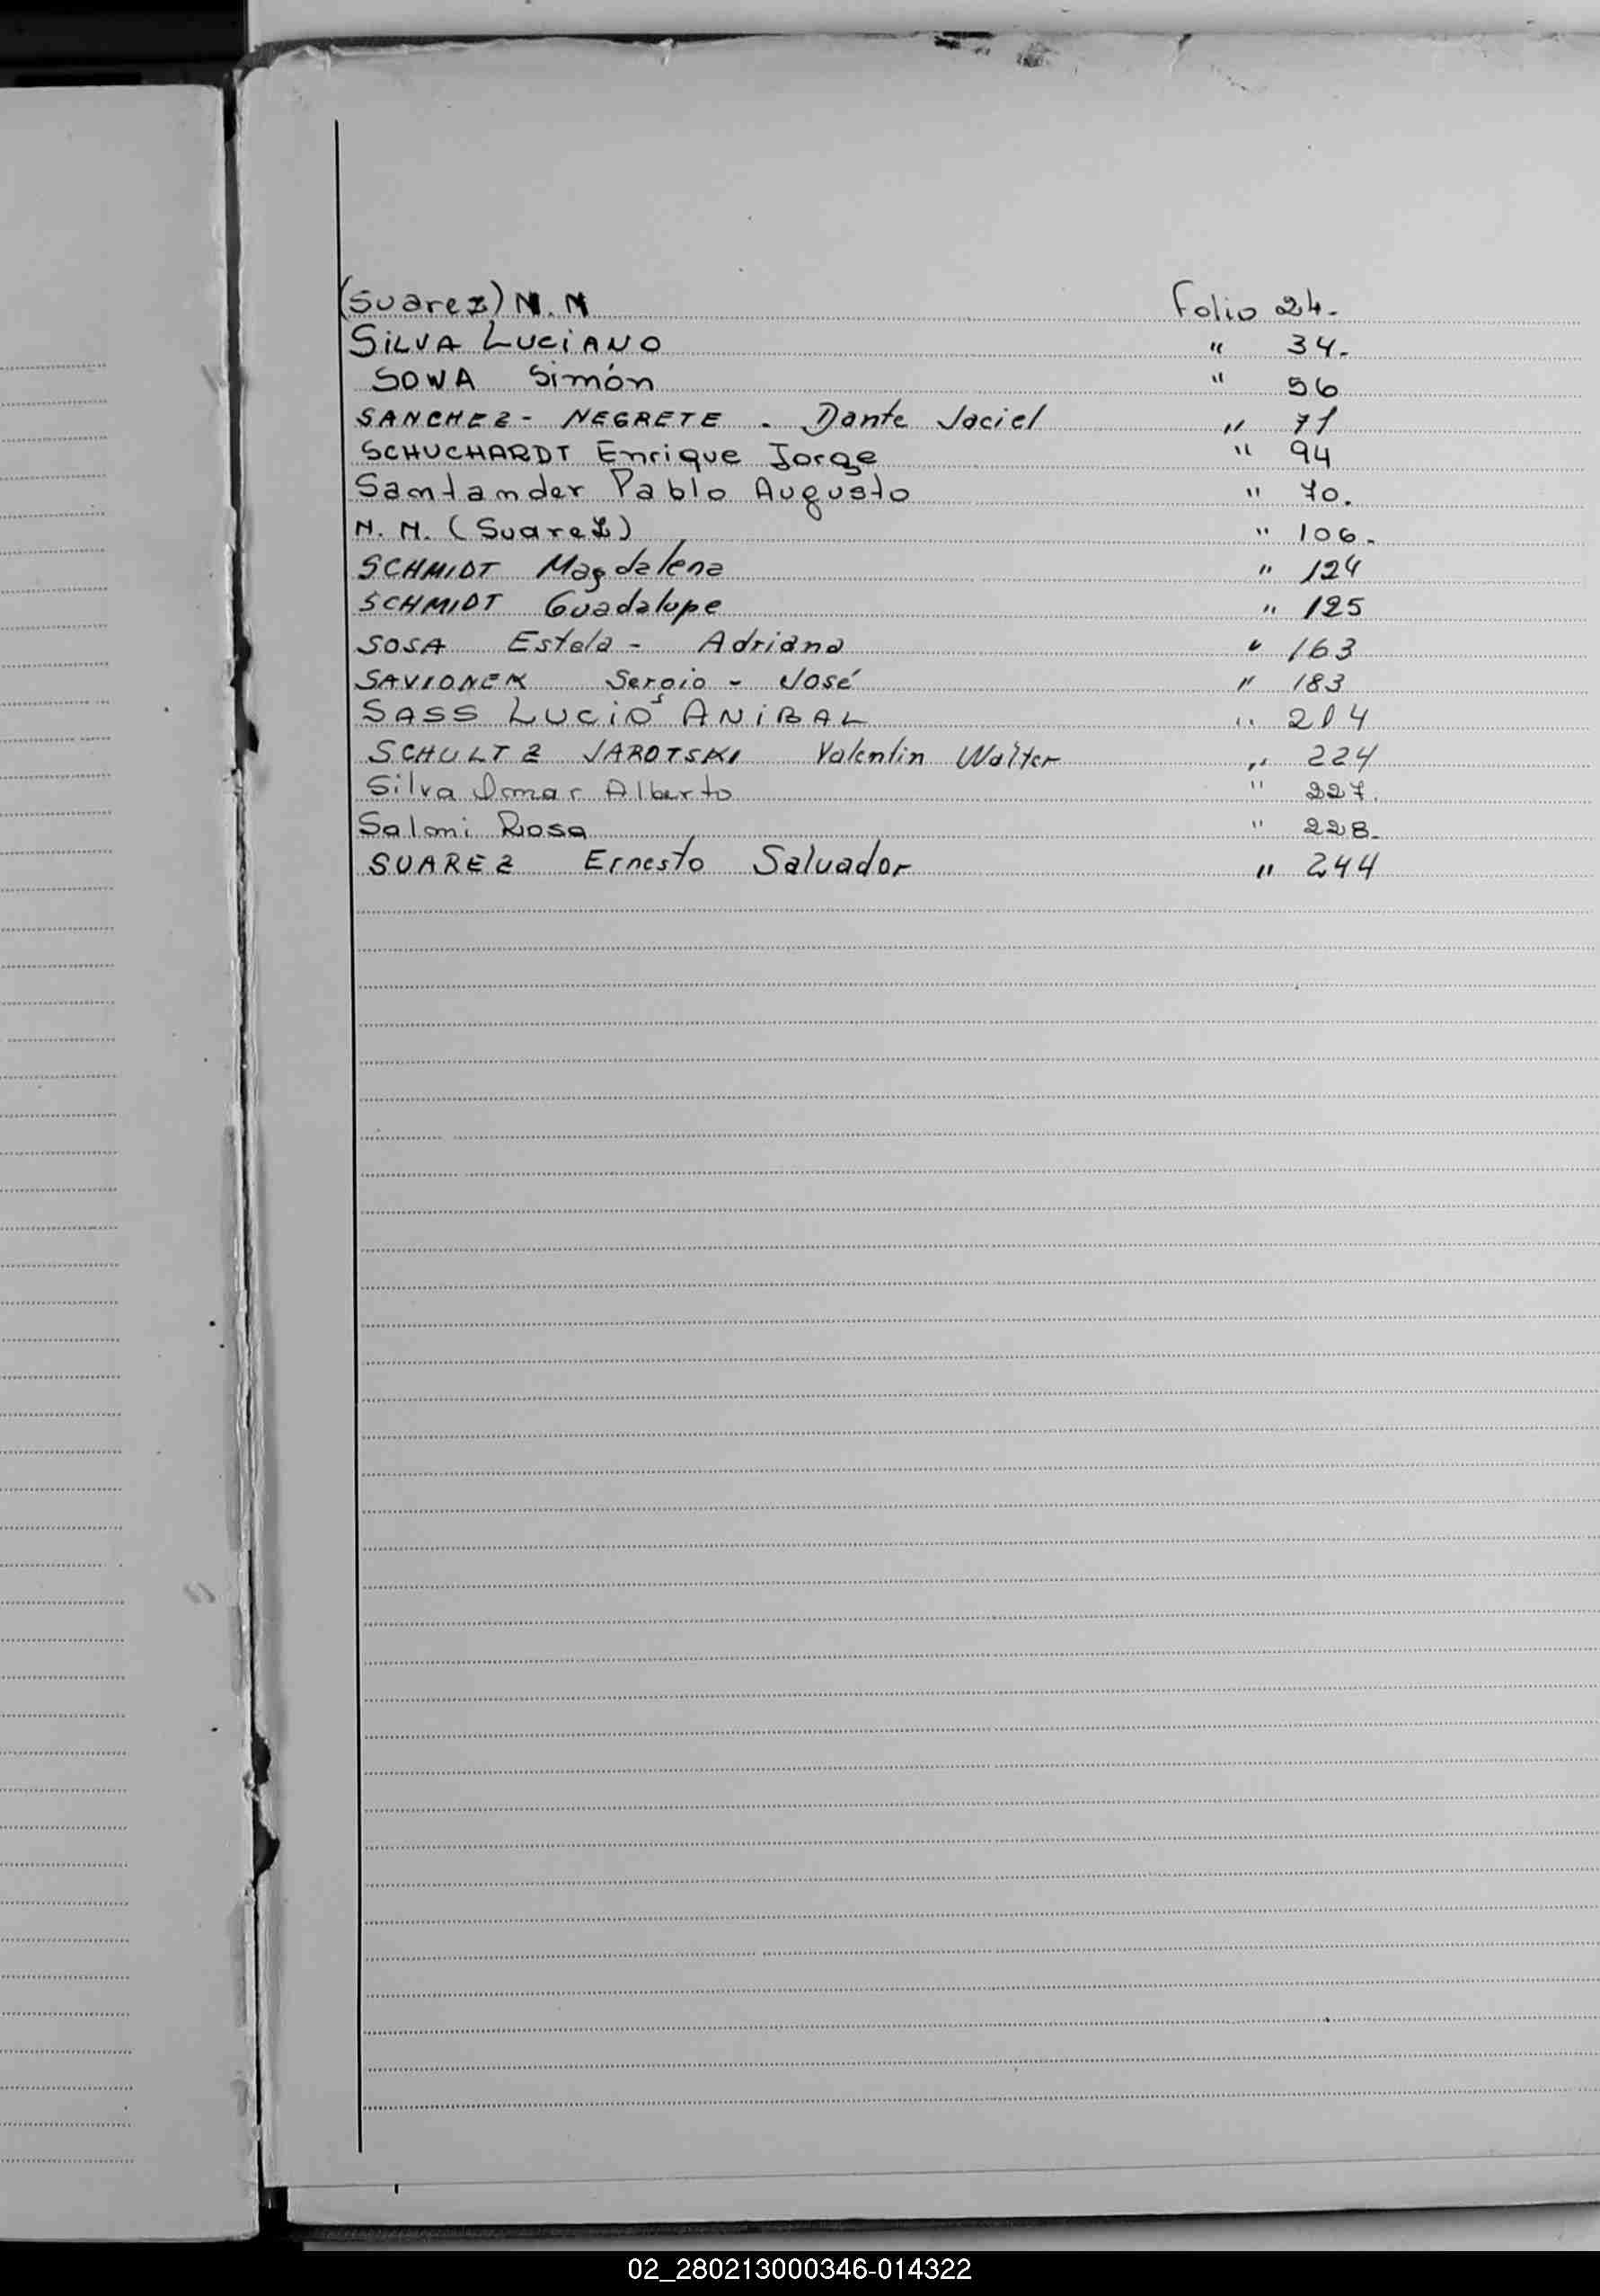 (Suarez) N. N Folio 24.
SILVA LUCIANO " 34.
SOWA Simón " 56
SANCHEZ - NEGRETE . Dante Jaciel " 71
SCHUCHARDT Enrique Jorge " 94
Santander Pablo Augusto " 70.
N. N. (Suarez) " 106.
SCHMIDT Magdalena " 124
SCHMIDT Guadalupe " 125
SOSA Estela - Adriana " 163
SAVIONEK Sergio - José " 183
SASS LUCIO ANIBAL " 214
SCHULTZ JAROTSKI Valentin Walter " 224
Silva Omar Alberto " 227.
Salmi Rosa " 228.
SUAREZ Ernesto Salvador " 244
02_280213000346-014322